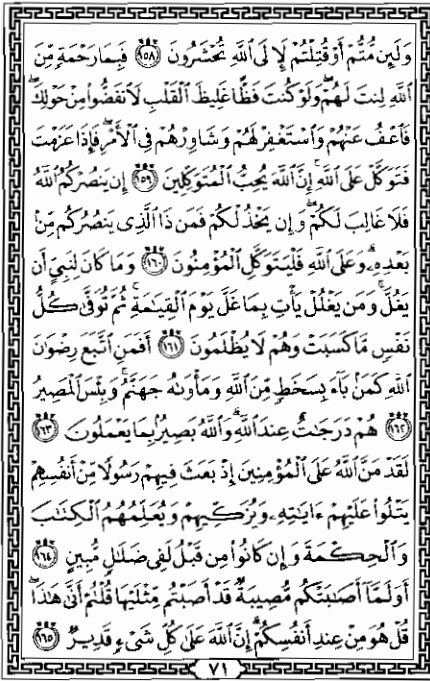 وَلَئِن مُّتُّمْ أَوْ قُتِلْتُمْ لَإِلَى ٱللَّهِ تُحْشَرُونَ ١٥٨ فَبِمَا رَحْمَةٍ مِّنَ
ٱللَّهِ لِنتَ لَهُمْ ۖ وَلَوْ كُنتَ فَظًّا غَلِيظَ ٱلْقَلْبِ لَٱنفَضُّوا۟ مِنْ حَوْلِكَ ۖ
فَٱعْفُ عَنْهُمْ وَٱسْتَغْفِرْ لَهُمْ وَشَاوِرْهُمْ فِى ٱلْأَمْرِ ۖ فَإِذَا عَزَمْتَ
فَتَوَكَّلْ عَلَى ٱللَّهِ ۚ إِنَّ ٱللَّهَ يُحِبُّ ٱلْمُتَوَكِّلِينَ ١٥٩ إِن يَنصُرْكُمُ ٱللَّهُ
فَلَا غَالِبَ لَكُمْ ۖ وَإِن يَخْذُلْكُمْ فَمَن ذَا ٱلَّذِى يَنصُرُكُم مِّنۢ
بَعْدِهِۦ ۗ وَعَلَى ٱللَّهِ فَلْيَتَوَكَّلِ ٱلْمُؤْمِنُونَ ١٦٠ وَمَا كَانَ لِنَبِىٍّ أَن
يَغُلَّ ۚ وَمَن يَغْلُلْ يَأْتِ بِمَا غَلَّ يَوْمَ ٱلْقِيَـٰمَةِ ۚ ثُمَّ تُوَفَّىٰ كُلُّ
نَفْسٍ مَّا كَسَبَتْ وَهُمْ لَا يُظْلَمُونَ ١٦١ أَفَمَنِ ٱتَّبَعَ رِضْوَٰنَ
ٱللَّهِ كَمَنۢ بَآءَ بِسَخَطٍ مِّنَ ٱللَّهِ وَمَأْوَىٰهُ جَهَنَّمُ ۚ وَبِئْسَ ٱلْمَصِيرُ
١٦٢ هُمْ دَرَجَـٰتٌ عِندَ ٱللَّهِ ۗ وَٱللَّهُ بَصِيرٌۢ بِمَا يَعْمَلُونَ ١٦٣
لَقَدْ مَنَّ ٱللَّهُ عَلَى ٱلْمُؤْمِنِينَ إِذْ بَعَثَ فِيهِمْ رَسُولًا مِّنْ أَنفُسِهِمْ
يَتْلُوا۟ عَلَيْهِمْ ءَايَـٰتِهِۦ وَيُزَكِّيهِمْ وَيُعَلِّمُهُمُ ٱلْكِتَـٰبَ
وَٱلْحِكْمَةَ وَإِن كَانُوا۟ مِن قَبْلُ لَفِى ضَلَـٰلٍ مُّبِينٍ ١٦٤
أَوَلَمَّآ أَصَـٰبَتْكُم مُّصِيبَةٌ قَدْ أَصَبْتُم مِّثْلَيْهَا قُلْتُمْ أَنَّىٰ هَـٰذَا ۖ
قُلْ هُوَ مِنْ عِندِ أَنفُسِكُمْ ۗ إِنَّ ٱللَّهَ عَلَىٰ كُلِّ شَىْءٍ قَدِيرٌ ١٦٥
٧١